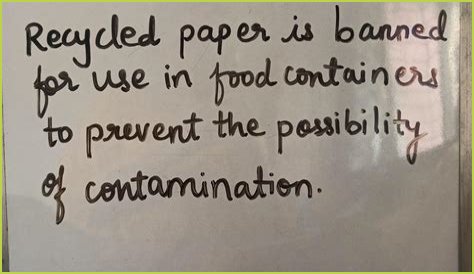 Recycled paper is banned
for use in food containers
to prevent the possibility
of contamination.